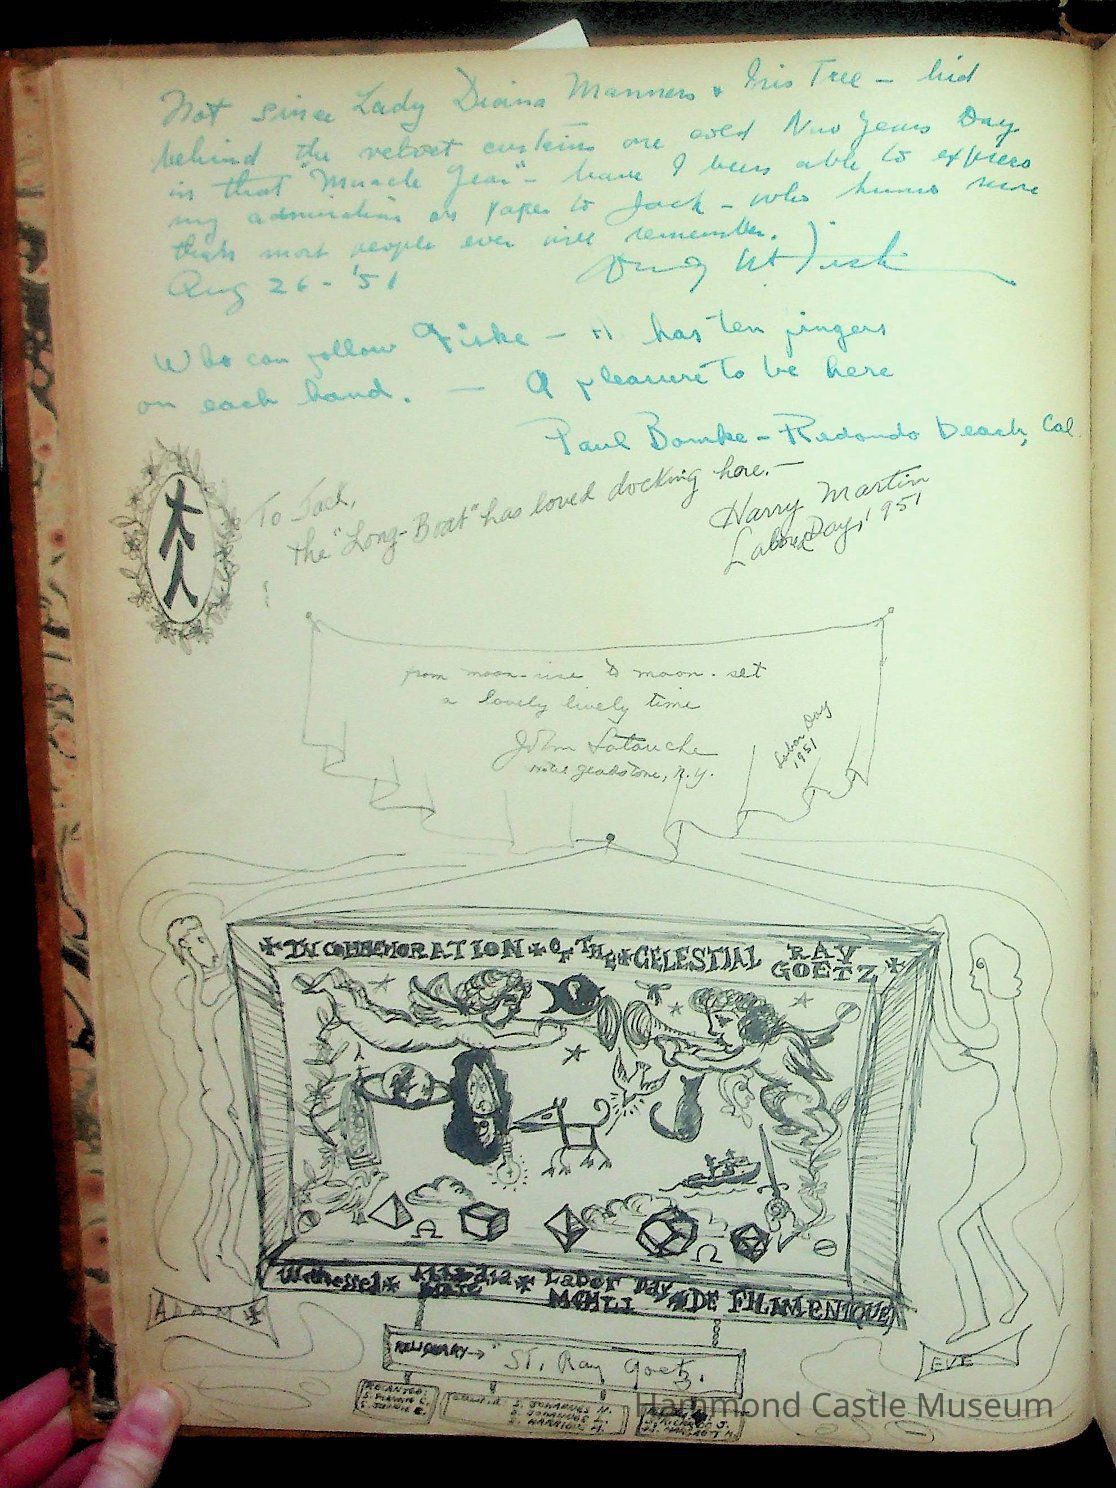 Not since Lady Diana Manners & Iris Tree — hid
behind the velvet curtains one cold New Years Day
in that "Miracle Year" — have I been able to express
my admiration on paper to Jack — who hums more
than most people ever will remember.
Aug 26 - '51
Who can follow Fiske — H has ten fingers
on each hand. — A pleasure to be here
Paul Bomke — Redondo Beach, Cal.
To Jack,
the "Long-Boat" has loved docking here. —
Harry Martin
Labor Day, 1951
from moon-rise to moon-set
a lovely lively time
John Latouche
Gladstone, N.Y.
Labor Day
1951
IN COMMEMORATION OF THE CELESTIAL RAY
GOETZ
Ω
Ω
Witnessed Labor Day
MCMLI DE FILAMENTIQUE
ADAM
EVE
RELIQUARY → ST. Ray Goetz.
S. JOHANNES
Hammond Castle Museum